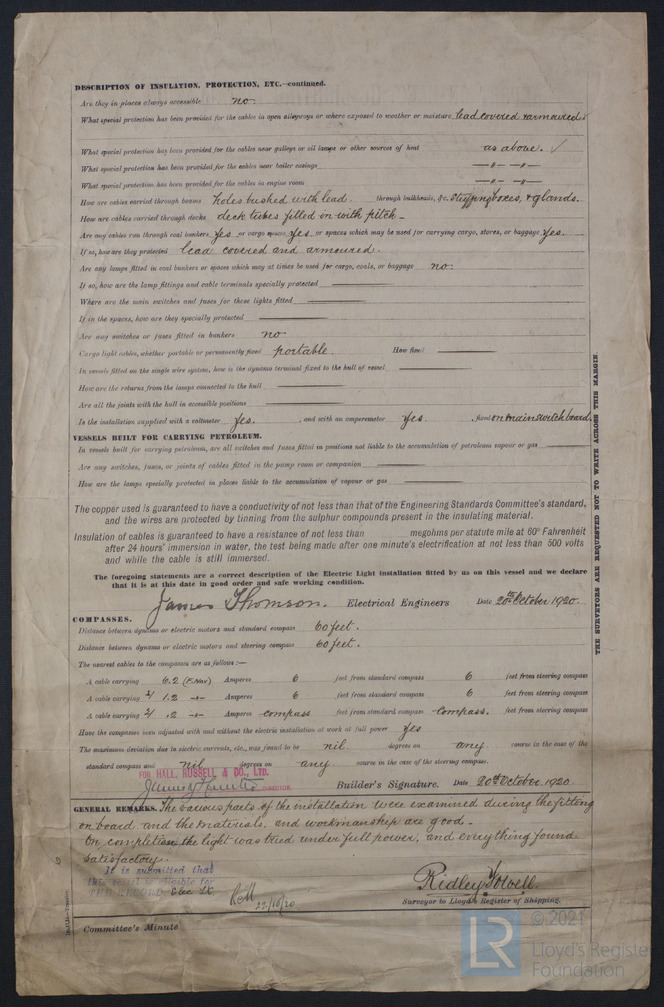 DESCRIPTION OF INSULATION, PROTECTION, ETC.—continued.
Are they in places always accessible no.
What special protection has been provided for the cables in open alleyways or where exposed to weather or moisture lead covered & armoured.
What special protection has been provided for the cables near galleys or oil lamps or other sources of heat as above. ✓
What special protection has been provided for the cables near boiler casings —〃— —〃—
What special protection has been provided for the cables in engine room —〃— —〃—
How are cables carried through beams holes bushed with lead. through bulkheads, &c. stuffing boxes, & glands.
How are cables carried through decks deck tubes filled in with pitch —
Are any cables run through coal bunkers yes or cargo spaces yes or spaces which may be used for carrying cargo, stores, or baggage yes.
If so, how are they protected lead covered and armoured.
Are any lamps fitted in coal bunkers or spaces which may at times be used for cargo, coals, or baggage no.
If so, how are the lamp fittings and cable terminals specially protected
Where are the main switches and fuses for these lights fitted
If in the spaces, how are they specially protected
Are any switches or fuses fitted in bunkers no
Cargo light cables, whether portable or permanently fixed portable. How fixed
In vessels fitted on the single wire system, how is the dynamo terminal fixed to the hull of vessel
How are the returns from the lamps connected to the hull
Are all the joints with the hull in accessible positions
Is the installation supplied with a voltmeter yes. , and with an amperemeter yes , fixed on main switchboard.
VESSELS BUILT FOR CARRYING PETROLEUM.
In vessels built for carrying petroleum, are all switches and fuses fitted in positions not liable to the accumulation of petroleum vapour or gas
Are any switches, fuses, or joints of cables fitted in the pump room or companion
How are the lamps specially protected in places liable to the accumulation of vapour or gas
The copper used is guaranteed to have a conductivity of not less than that of the Engineering Standards Committee's standard,
and the wires are protected by tinning from the sulphur compounds present in the insulating material.
Insulation of cables is guaranteed to have a resistance of not less than megohms per statute mile at 60° Fahrenheit
after 24 hours' immersion in water, the test being made after one minute's electrification at not less than 500 volts
and while the cable is still immersed.
The foregoing statements are a correct description of the Electric Light installation fitted by us on this vessel and we declare
that it is at this date in good order and safe working condition.
James Thomson. Electrical Engineers Date 20th October 1920.
COMPASSES.
Distance between dynamo or electric motors and standard compass 60 feet.
Distance between dynamo or electric motors and steering compass 60 feet.
The nearest cables to the compasses are as follows:—
A cable carrying 6.2 (F. Nav) Amperes 6 feet from standard compass 6 feet from steering compass
A cable carrying 1.2 —〃— Amperes 6 feet from standard compass 6 feet from steering compass
A cable carrying .2 —〃— Amperes compass feet from standard compass compass. feet from steering compass
Have the compasses been adjusted with and without the electric installation at work at full power yes
The maximum deviation due to electric currents, etc., was found to be nil degrees on any course in the case of the
standard compass and nil degrees on any course in the case of the steering compass.
FOR HALL, RUSSELL & CO., LTD.
DIRECTOR. Builder's Signature. Date 20th October 1920
GENERAL REMARKS. The various parts of the installation were examined during the fitting
on board and the materials and workmanship are good.
On completion the light was tried under full power, and everything found
satisfactory.
It is submitted that
this vessel is eligible for
THE RECORD. Elec Lt.
22/10/20
Surveyor to Lloyd's Register of Shipping.
Committee's Minute
THE SURVEYORS ARE REQUESTED NOT TO WRITE ACROSS THIS MARGIN.
LR
© 2021
Lloyd's Registe
Foundation